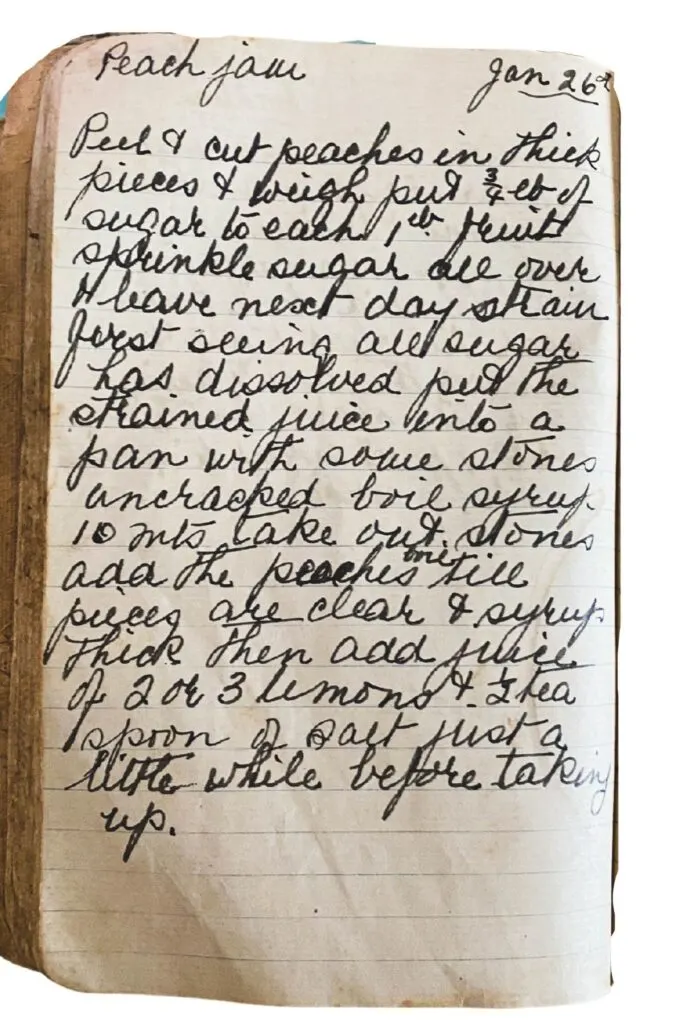 Peach jam Jan 26th
Peel & cut peaches in thick
pieces & weigh put ¾ lb of
sugar to each 1 lb fruit
sprinkle sugar all over
& leave next day strain
first seeing all sugar
has dissolved put the
strained juice into a
pan with some stones
uncracked boil syrup
10 mts take out stones
add the peaches till
pieces are clear & syrup
thick then add juice
of 2 or 3 lemons & ½ tea
spoon of salt just a
little while before taking
up.